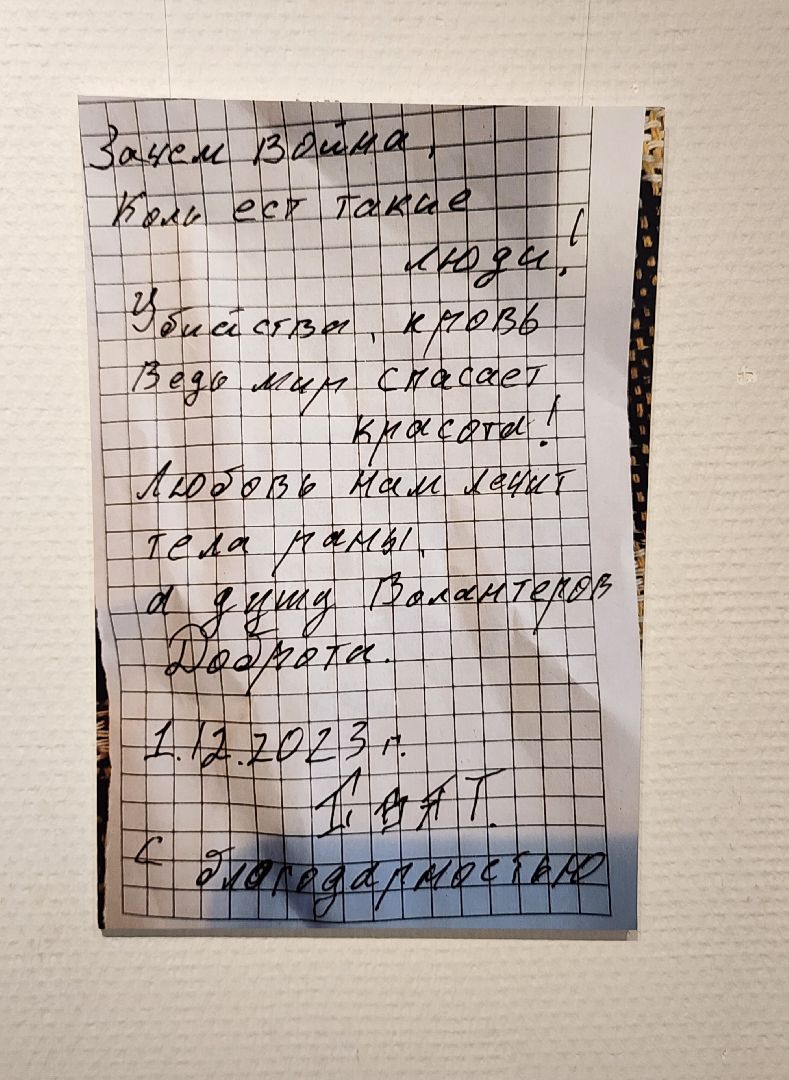 Зачем Война,
Коль ест такие
люди!
Убийства, кровь
Ведь мир спасает
красота!
Любовь нам лечит
тела раны,
а душу Валантеров
Доброта.
1.12.2023 г.
С благодарностью